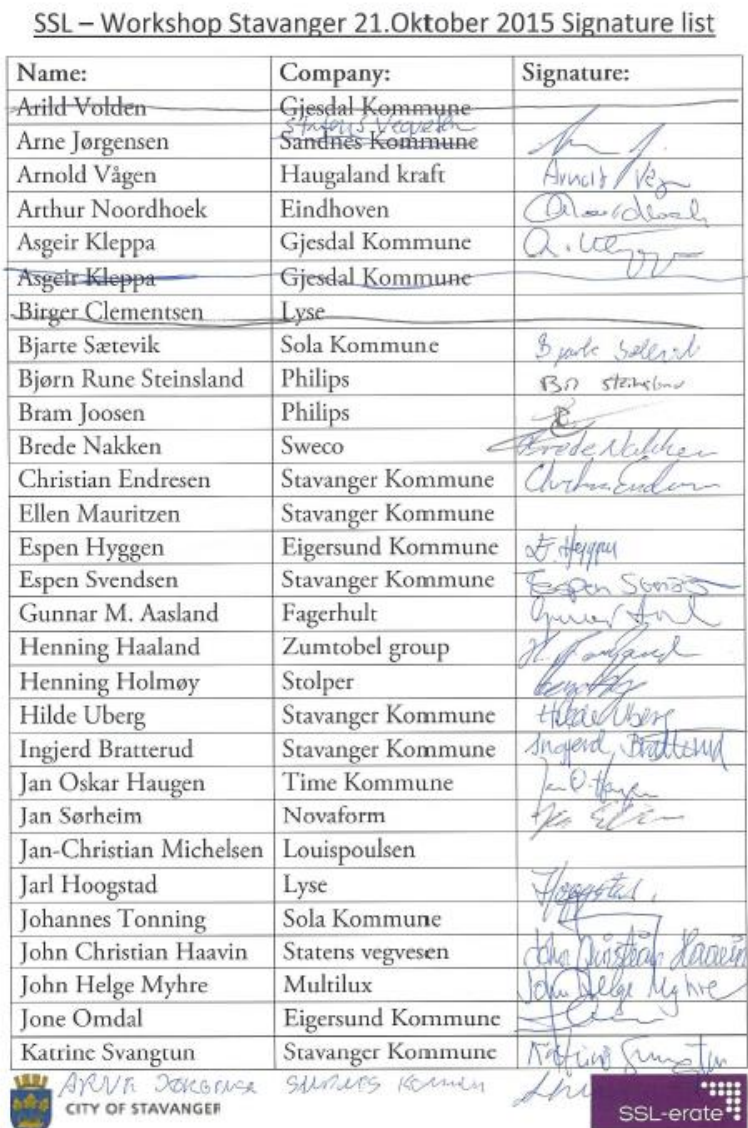 SSL – Workshop Stavanger 21.Oktober 2015 Signature list
Name: Company: Signature:
Arild Volden Gjesdal Kommune
Statens Vegvesen
Arne Jørgensen Sandnes Kommune
Arnold Vågen Haugaland kraft Arnold Våg
Arthur Noordhoek Eindhoven
Asgeir Kleppa Gjesdal Kommune
Asgeir Kleppa Gjesdal Kommune
Birger Clementsen Lyse
Bjarte Sætevik Sola Kommune Bjarte Sætevik
Bjørn Rune Steinsland Philips BR Steinsland
Bram Joosen Philips
Brede Nakken Sweco Brede Nakken
Christian Endresen Stavanger Kommune
Ellen Mauritzen Stavanger Kommune
Espen Hyggen Eigersund Kommune E. Hyggen
Espen Svendsen Stavanger Kommune Espen
Gunnar M. Aasland Fagerhult
Henning Haaland Zumtobel group
Henning Holmøy Stolper
Hilde Uberg Stavanger Kommune Hilde Uberg
Ingjerd Bratterud Stavanger Kommune Ingjerd Bratterud
Jan Oskar Haugen Time Kommune Jan O. Haugen
Jan Sørheim Novaform
Jan-Christian Michelsen Louispoulsen
Jarl Hoogstad Lyse Hoogstad
Johannes Tonning Sola Kommune
John Christian Haavin Statens vegvesen John Christian Haavin
John Helge Myhre Multilux John Helge Myhre
Jone Omdal Eigersund Kommune
Katrine Svangtun Stavanger Kommune Katrine Svangtun
ARNE JØRGENSEN SANDNES KOMMUNE
CITY OF STAVANGER
SSL-erate